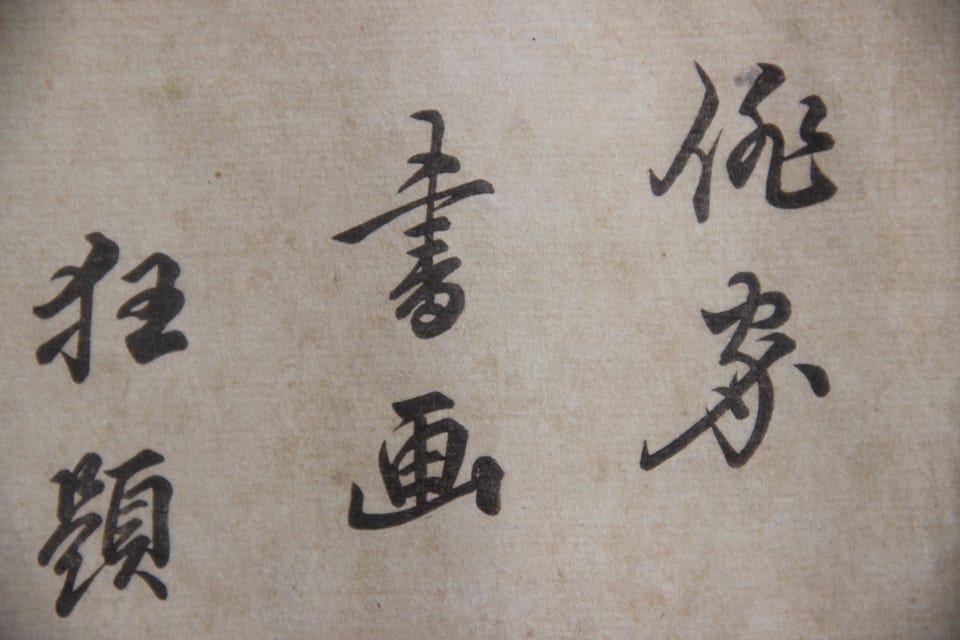 俳家
書画
狂題